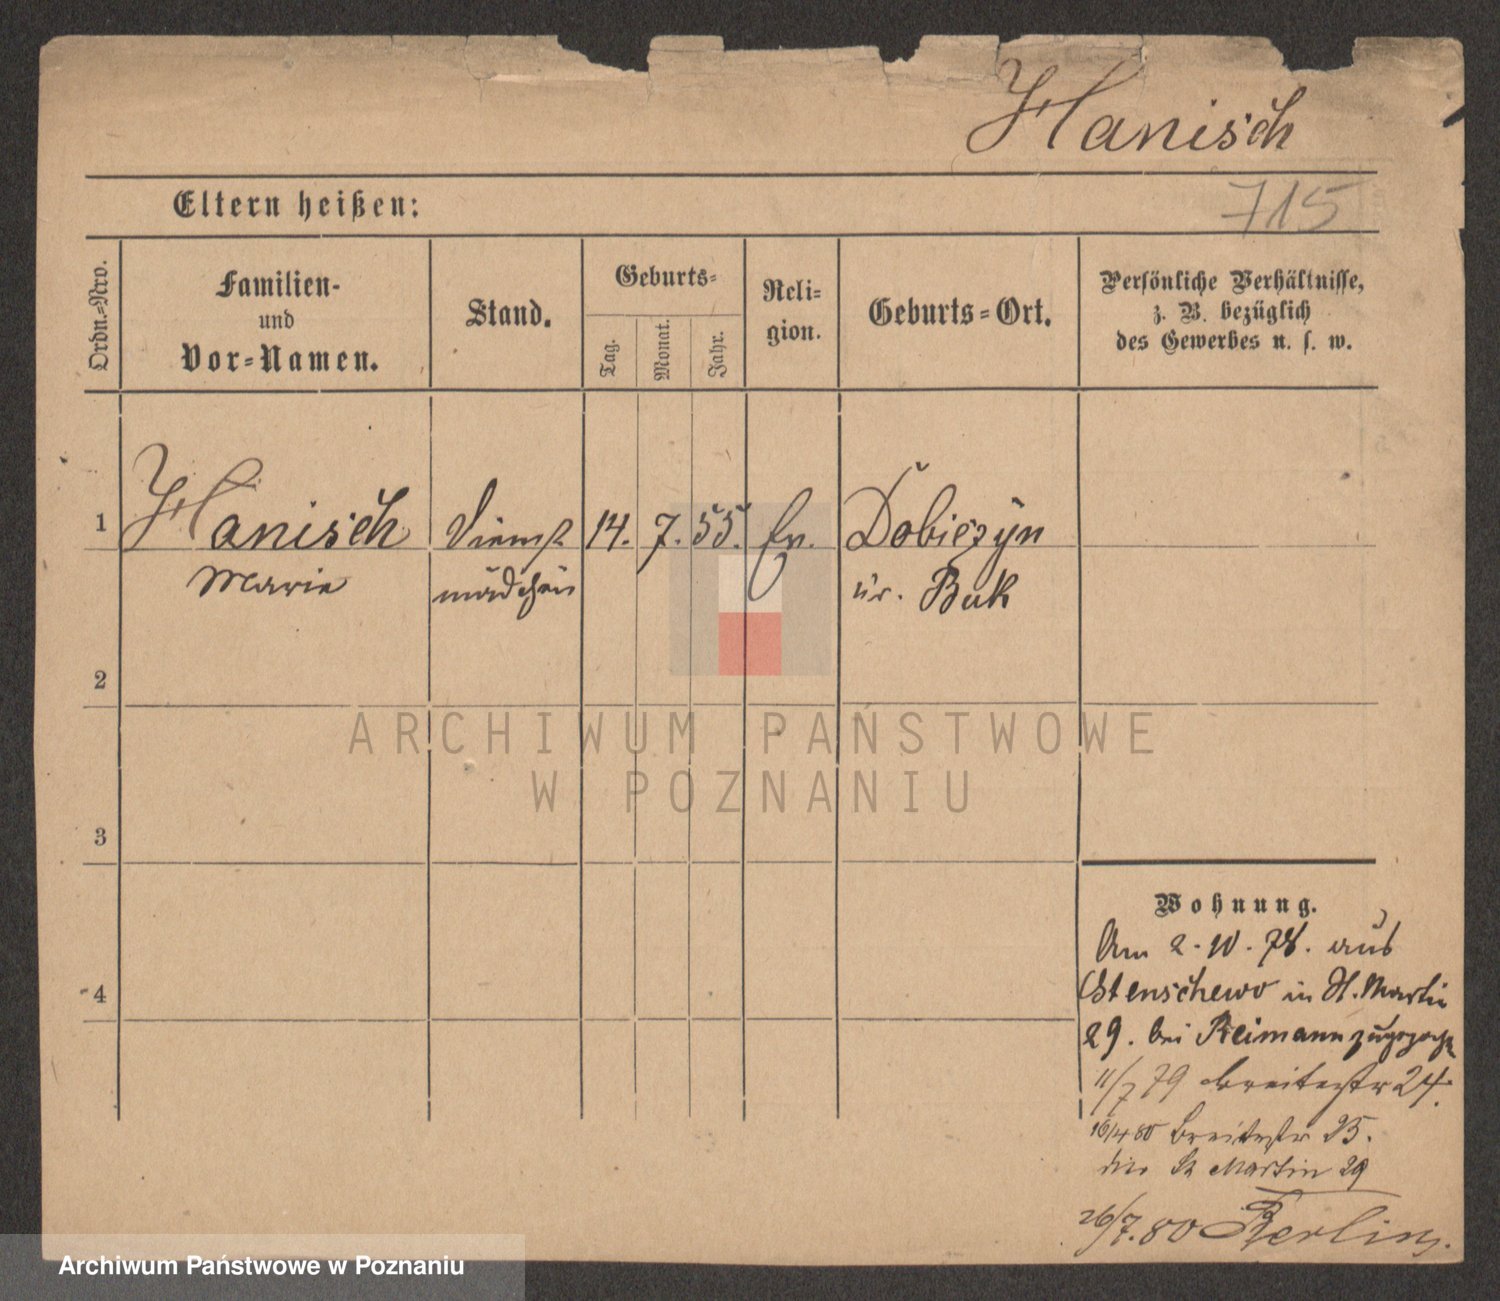 Hanisch
Eltern heißen:
715
Ordn.-Nro.
Familien-
und
Vor-Namen.
Stand.
Geburts-
Tag.
Monat.
Jahr.
Reli-
gion.
Geburts-Ort.
Persönliche Verhältnisse,
z. B. bezüglich
des Gewerbes u. s. w.
1 Hanisch Dienst 14. 7. 55. Ev. Dobieżyn
Marie mädchen Kr. Buk
2
3
4
Wohnung.
Am 2. 10. 78. aus
Stenschewo in St. Martin
29. bei Reimann
11/7 79 Breitestr 24.
16/4 80 Breitestr 25.
St Martin 29
26/7. 80 Berlin.
ARCHIWUM PAŃSTWOWE
W POZNANIU
Archiwum Państwowe w Poznaniu